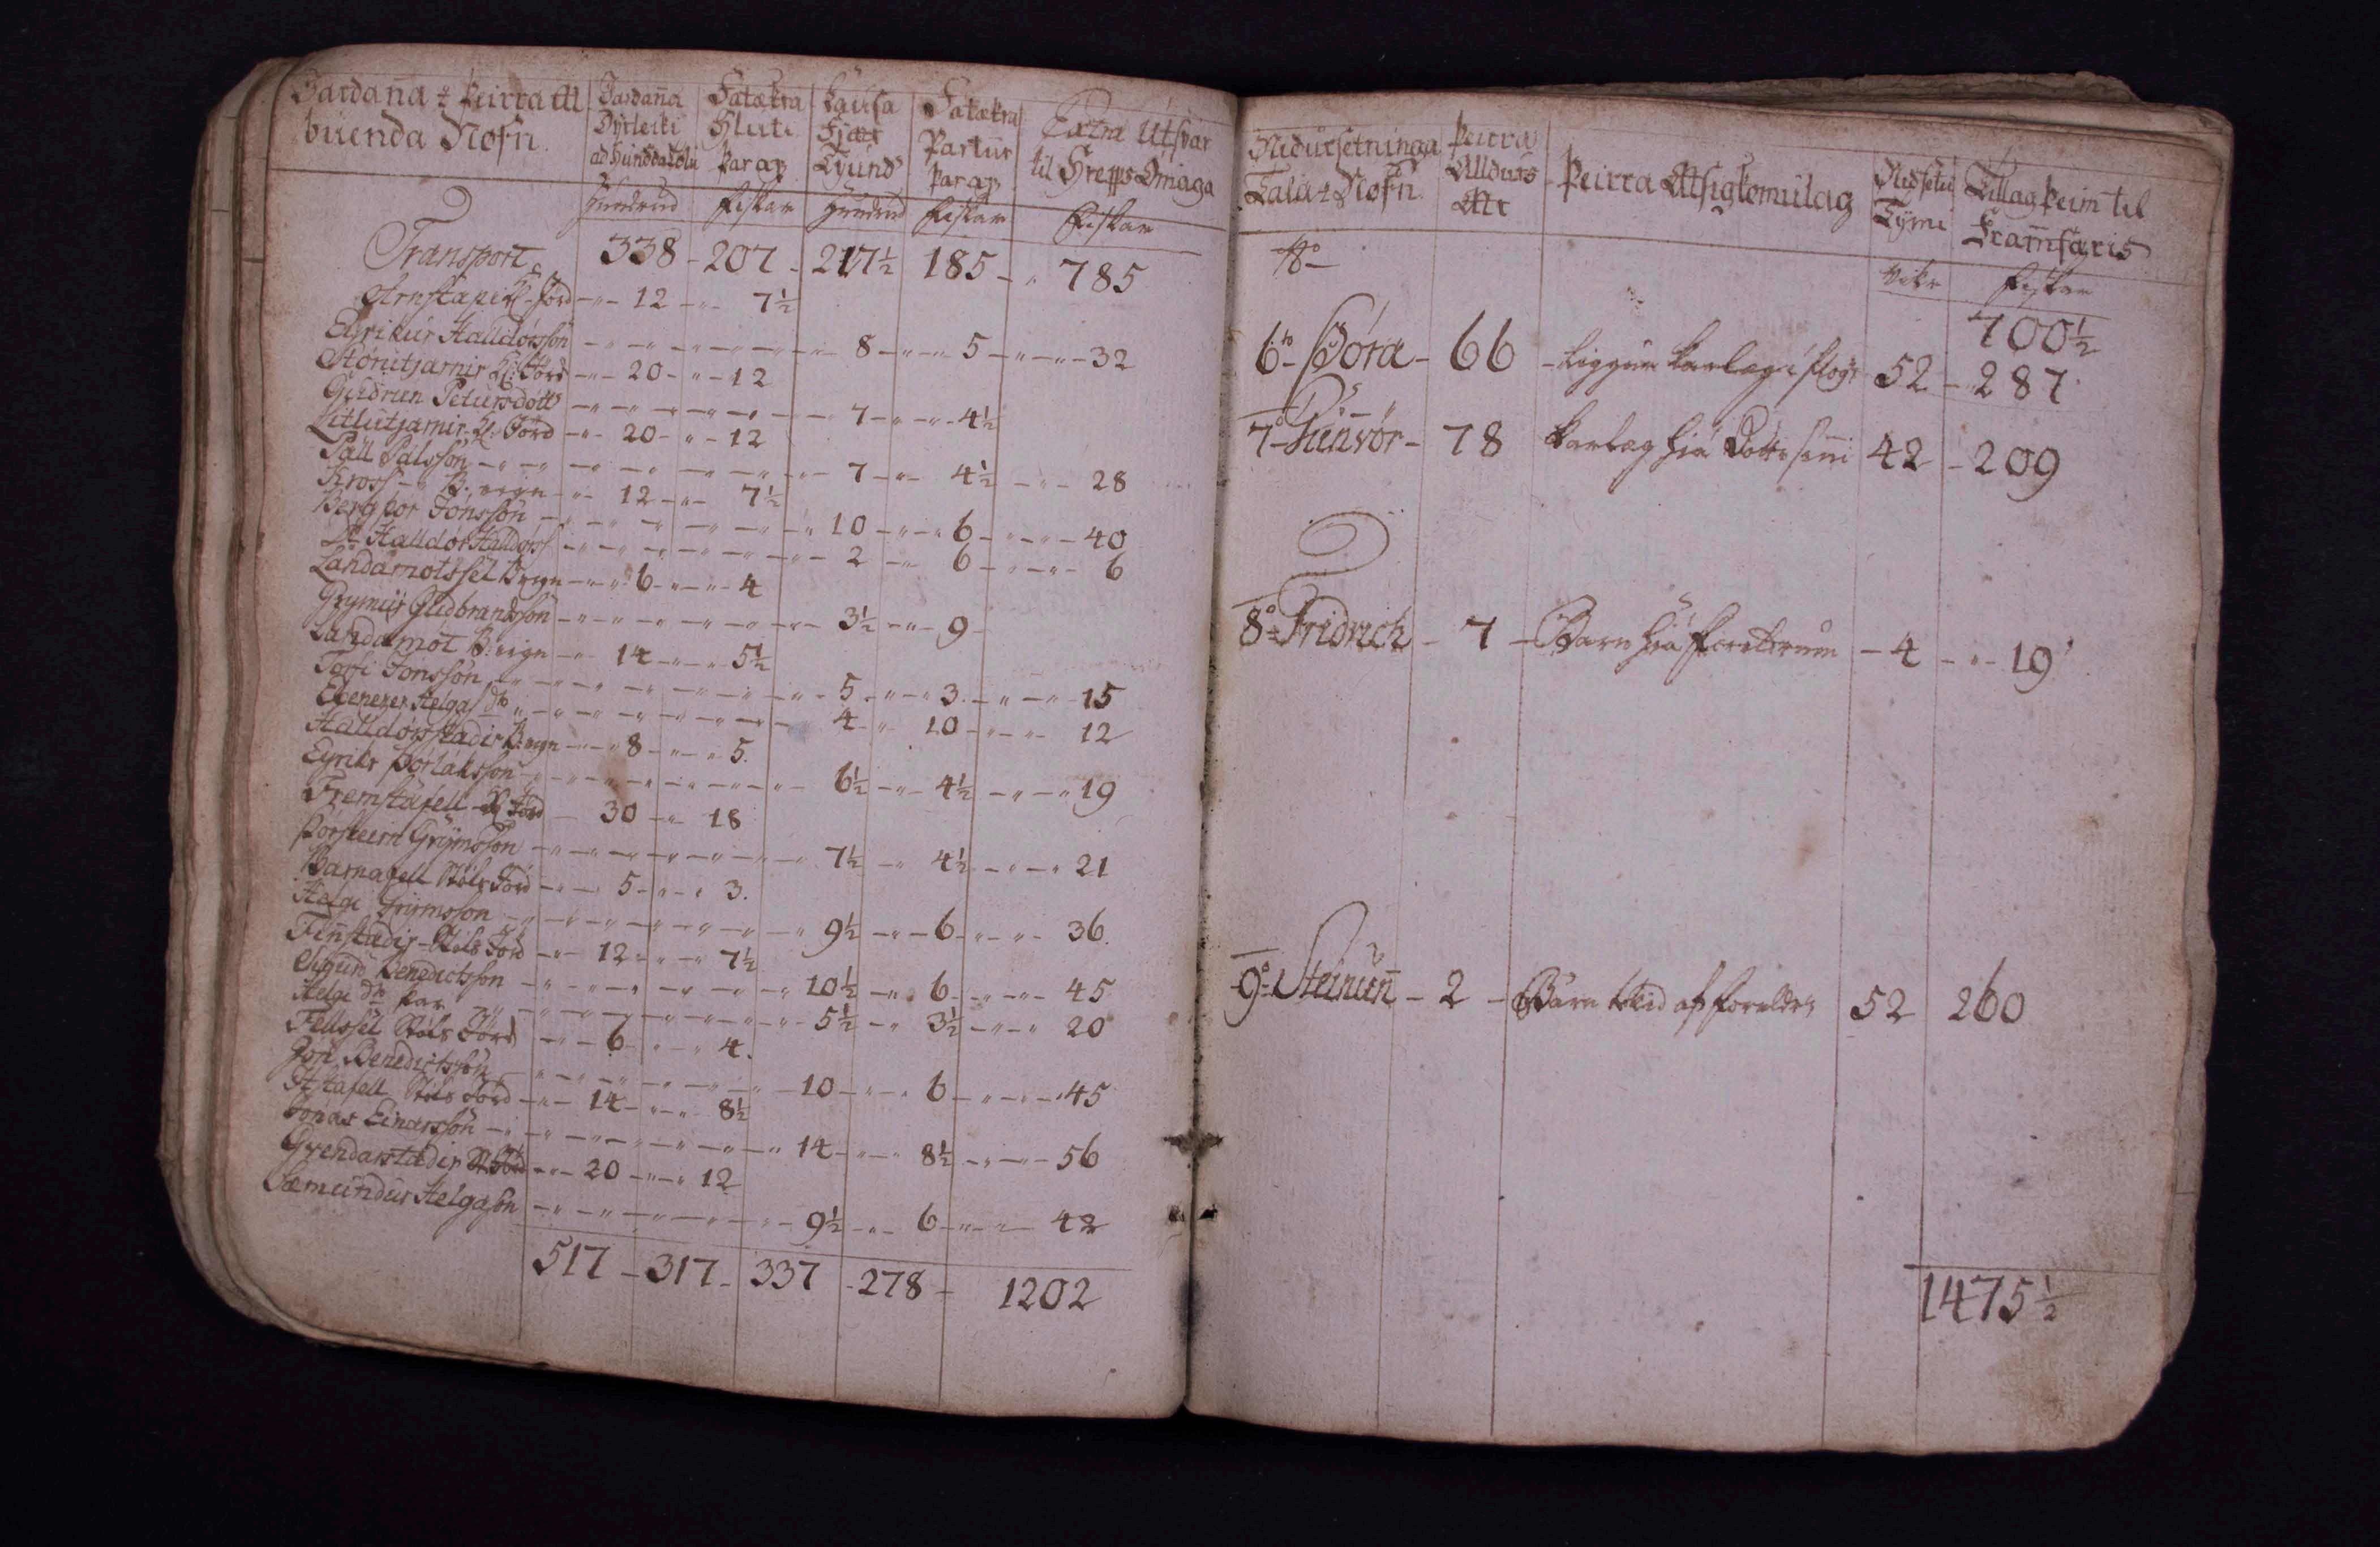 Jardaña & þeirra all
büenda Nofn.
Jardaña
Dýrleiki
ad hündradatolu
Fatækra
Hluti
þar ap
Laüsa
Fiaar
Tÿund
Fatækra
Partür
þar ap
Extra Utsvar
til Hrepps Omaga
Hundrud Fiskar Hundrud Fiskar Fiskar
Transport 338 - 207 - 217½ 185 - 785
Arnstapi Kl. Jörd 12 7½
Eÿrikur Halldórsson 8 5 32
Störutjarnir Kl: Jörd 20 12
Gudrun Petursdott 7 4½
Litlutjarnir Kl: Jörd 20 12
Páll Pálsson 7 4½ 28
Kross B: eign 12 7½
Bergþor Jonsson 10 6 40
Sr Halldór Halldorss 2 6 6
Landamotssel B eign 6 4
Grÿmur Gudbrandsson 3½ 9
Landamot B: eign 14 5½
Torfi Jonsson 5 3 15
Ebenezer Helgas 4 10 12
Halldorsstadir B: eign 8 5.
Eyrikr Þorláksson 6½ 4½ 19
Fremstafell Kl Jörd 30 18
Þorsteirn Grÿmsson 7½ 4½ 21
Barnafell Stóls Jörd 5 3.
Helge Grÿmsson 9½ 6 36.
Fiñstadir Stóls Jörd 12 7½
Sigurd Benedictsson 10½ 6 45
Helge þar 5½ 3½ 20
Fellssel Stóls Jörd 6 4.
Jón Benedictsson 10 6 45
Hafafell Stóls Jörd 14 8½
Jonas Einarsson 14 8½ 56
Gvendarstadir St. Jörd 20 12
Sæmundur Helgason 9½ 6 42
517 - 317 - 337 - 278 - 1202
Nidürsetninga
Tala & Nofn.
þeirra
Alldurs
Ar
þeirra Atsigkomülag
Nidsetu
Tÿmi
Tillag þeim til
Frammfæris
No
Vikr Fiskar
700½
6o Þóra - 66 - liggur karlæg í 52 - 287
7o Þunvör - 78 karlæg hiá Dottr sinni 42 - 209
8o Fridrich - 7 - Barn hiá Foreldrum - 4 - 19
9o Steinuñ - 2 - Barn tekid af foreldr 52 260
1475½